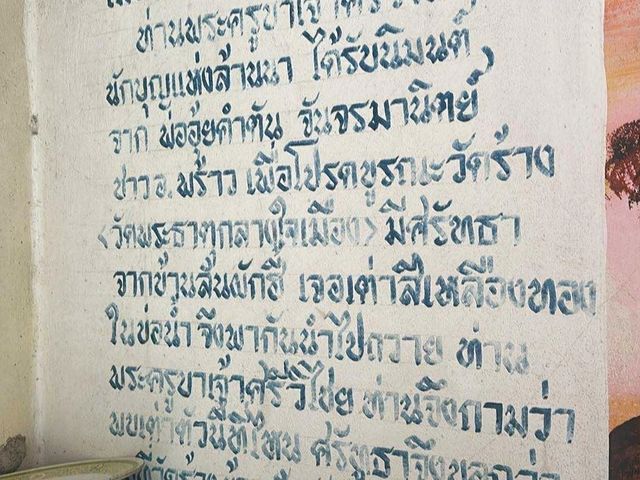 ท่านพระครูบาเจ้า
นักบุญแห่งล้านนา ได้รับนิมนต์
จาก พ่ออุ้ยคำตัน จันจรมานิตย์
ชาวอ.พร้าว เพื่อโปรดบูรณะวัดร้าง
<วัดพระธาตุกลางใจเมือง> มีศรัทธา
จากบ้านสันผักฮี้ เจอเต่าสีเหลืองทอง
ในบ่อน้ำ จึงพากันนำไปถวาย ท่าน
พระครูบาเจ้าศรีวิไชย ท่านจึงถามว่า
พบเต่าตัวนี้ที่ไหน ศรัทธาจึงบอกว่า